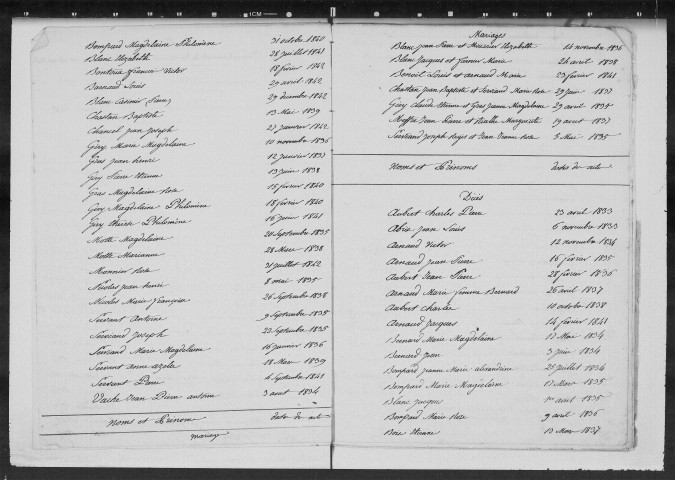 ICM
Bompard Magdelaine Philomène 31 octobre 1840
Blanc Elizabeth 28 juillet 1841
Bontoux francois Victor 18 février 1842
Barnaud Louis 29 avril 1842
Blanc Casimir 29 decembre 1842
Chastan Baptiste 13 Mai 1839
Chancel jean joseph 27 janvier 1842
Gery Marie Magdelaine 10 novembre 1836
Gras jean henri 12 janvier 1837
Gery Pierre Etienne 13 juin 1838
Gras Magdelaine Rose 15 février 1840
Gery Magdelaine Philomène 18 février 1840
Gery therese Philomène 16 juin 1841
Motte Magdelaine 20 Septembre 1835
Motte Marianne 28 Mars 1838
Monnier Rose 31 juillet 1842
Nicolas jean henri 8 mai 1835
Nicolas Marie françoise 26 Septembre 1838
Antoine 9 Septembre 1835
joseph 23 Septembre 1835
Marie Magdelaine 16 janvier 1836
anne 18 Mars 1839
Pierre 4 Septembre 1841
Vache Jean Pierre antoine 3 aout 1834
Noms et Prenoms date des actes
mariages
Mariages
Blanc jean Pierre et Elizabeth 14 novembre 1836
Blanc jacques et Marie 24 avril 1838
Benoit Louis et arnaud Marie 23 février 1841
Chastan jean Baptiste et Marie Rose 29 juin 1837
Gery Claude Etienne et Gras jeanne Magdelaine 29 avril 1835
Jean Pierre et Marguerite 19 aout 1837
joseph et Jean Rose 5 Mai 1835
Noms et Prénoms dates des actes
Décès
Aubert Charles Pierre 23 avril 1833
jean Louis 6 novembre 1833
Arnaud Victor 12 novembre 1834
Arnaud jean Pierre 16 février 1835
Aubert Jean Pierre 28 février 1836
Arnaud Marie femme Bernard 26 avril 1837
Aubert Charles 10 octobre 1838
Arnaud jacques 14 février 1841
Bernard Marie Magdelaine 17 Mars 1834
Bernard jean 3 juin 1834
Bompard jeanne Marie alexandrine 25 juillet 1834
Bompard Marie Magdelaine 17 Mars 1835
Blanc jacques 1er avril 1835
Bompard Marie Rose 9 avril 1836
Etienne 13 Mars 1837